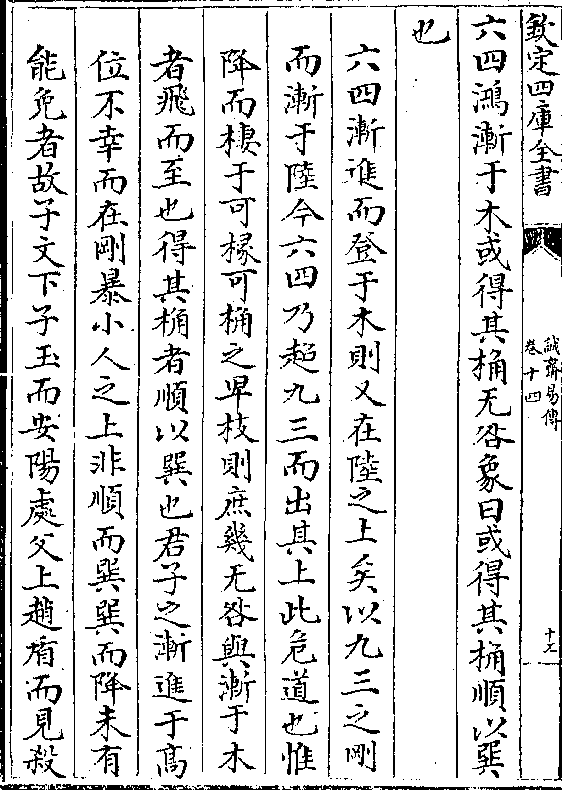 欽定四庫全書
誠齋易傳
卷十四
六四鴻漸于木或得其桷无咎象曰或得其桷順以巽
也
六四漸進而登于木則又在陸之上矣以九三之剛
而漸于陸今六四乃超九三而出其上此危道也惟
降而棲于可椽可桷之卑枝則庶幾无咎與漸于木
者飛而至也得其桷者順以巽也君子之漸進于髙
位不幸而在剛暴小人之上非順而巽巽而降未有
能免者故子文下子玉而安陽處父上趙盾而見殺